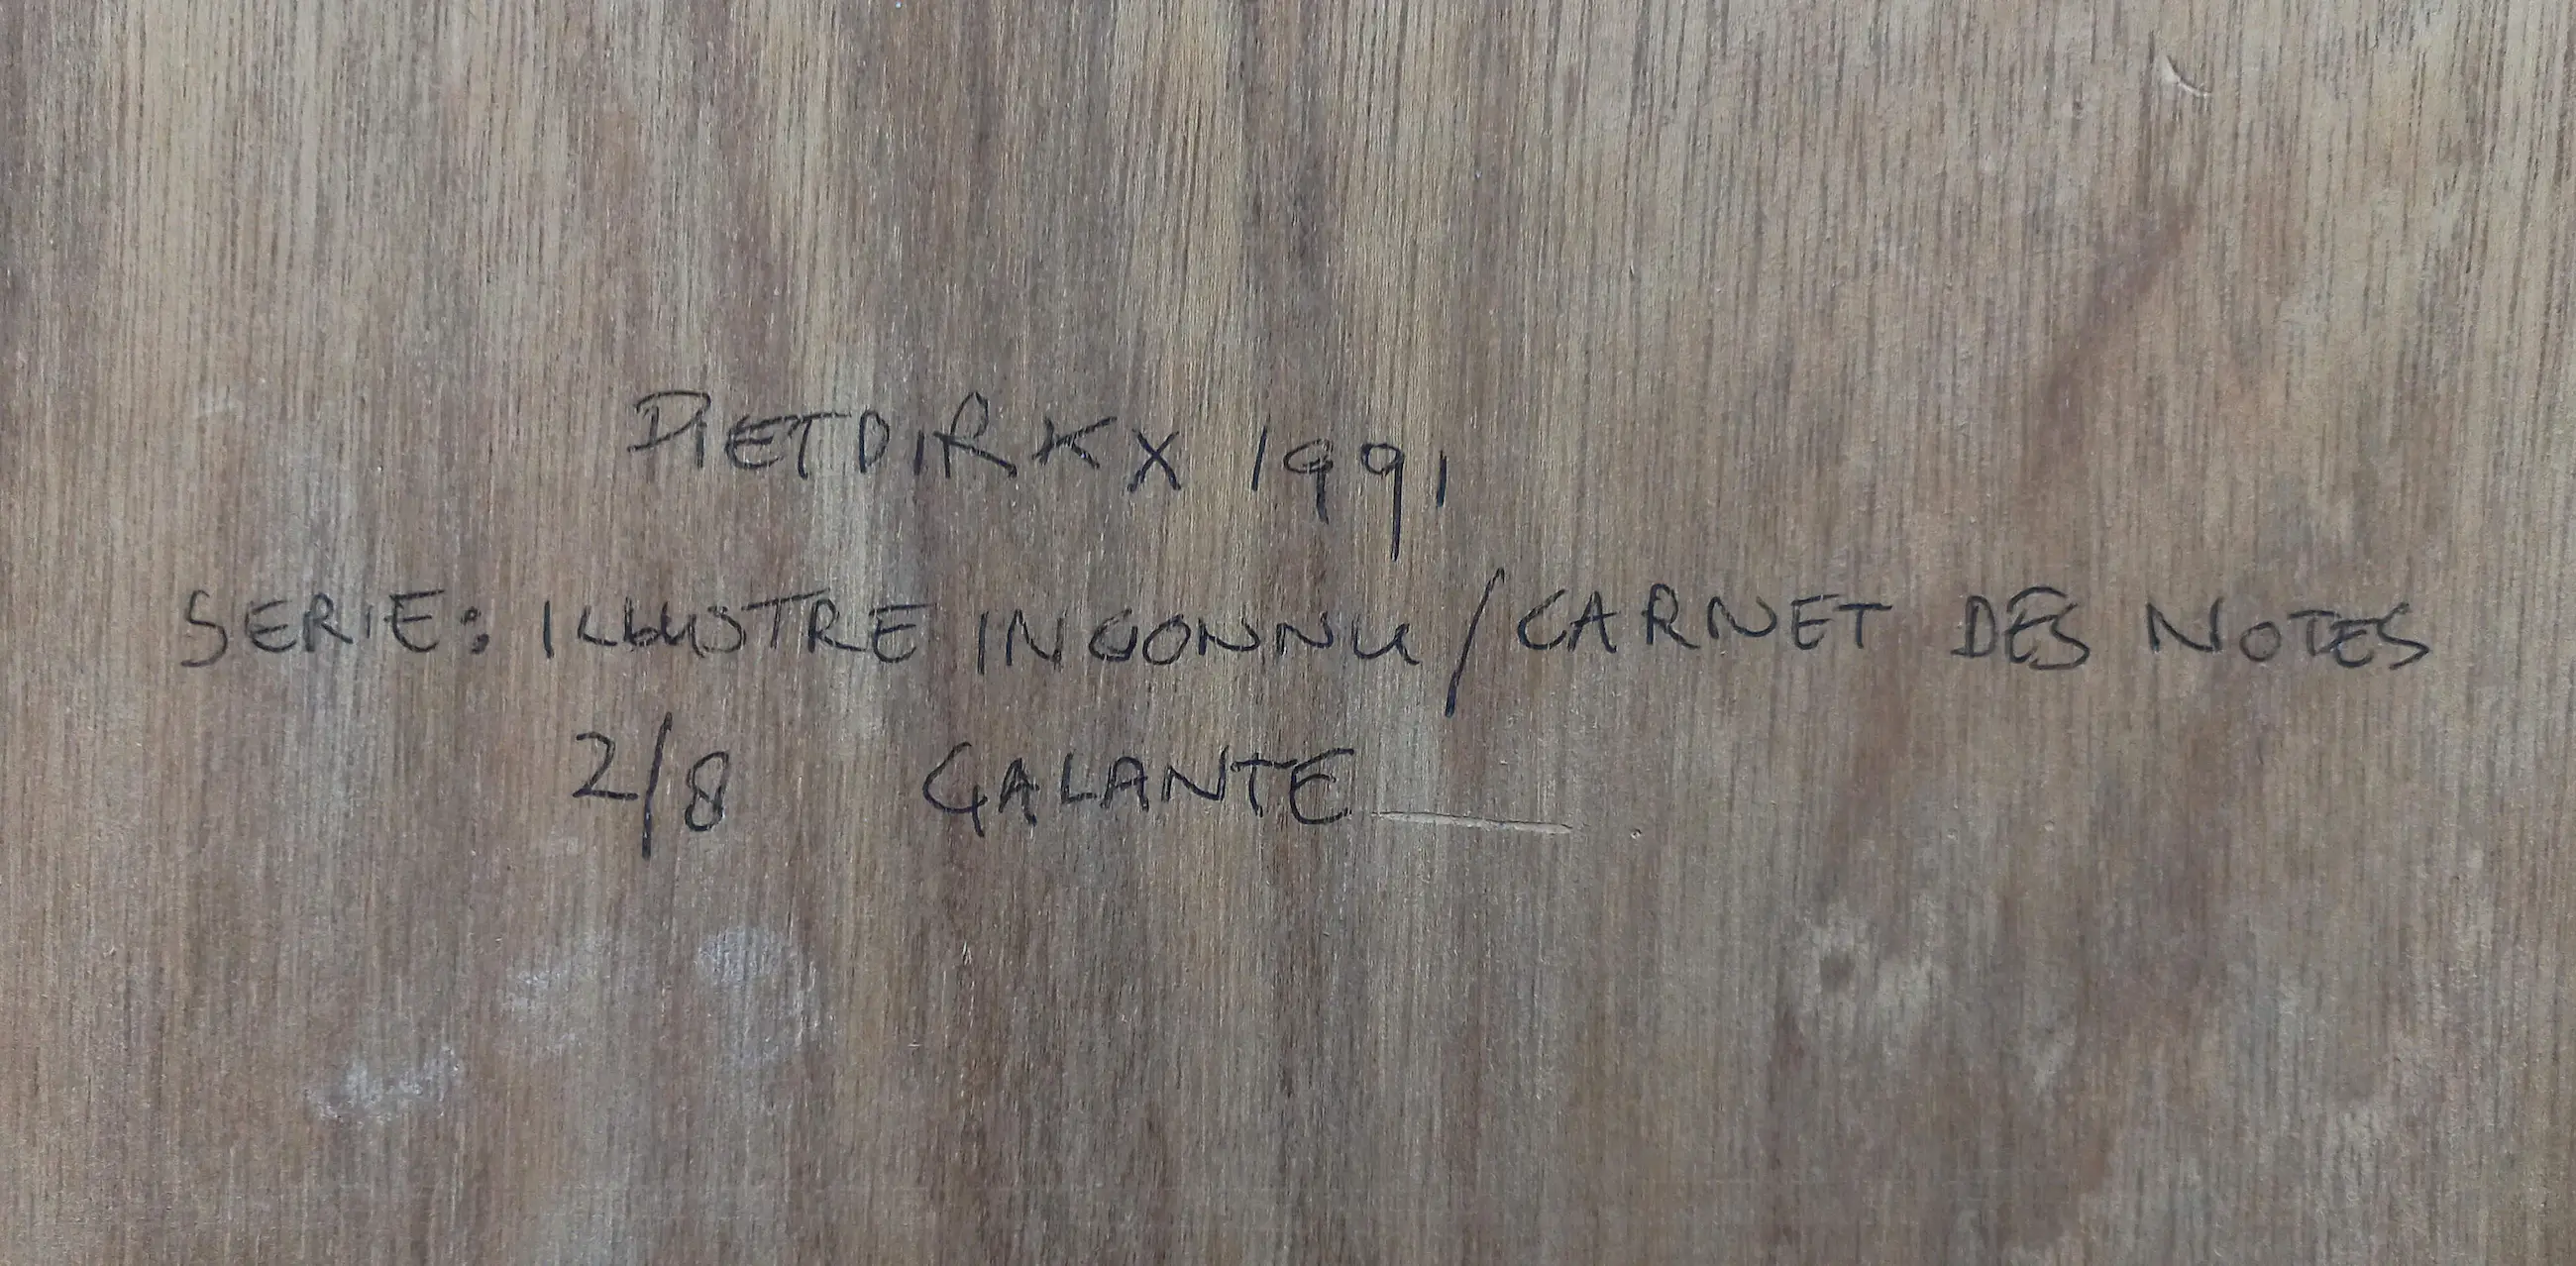 PIET DIRKX 1991
SERIE: ILLUSTRE INCONNU / CARNET DES NOTES
2/8 GALANTE